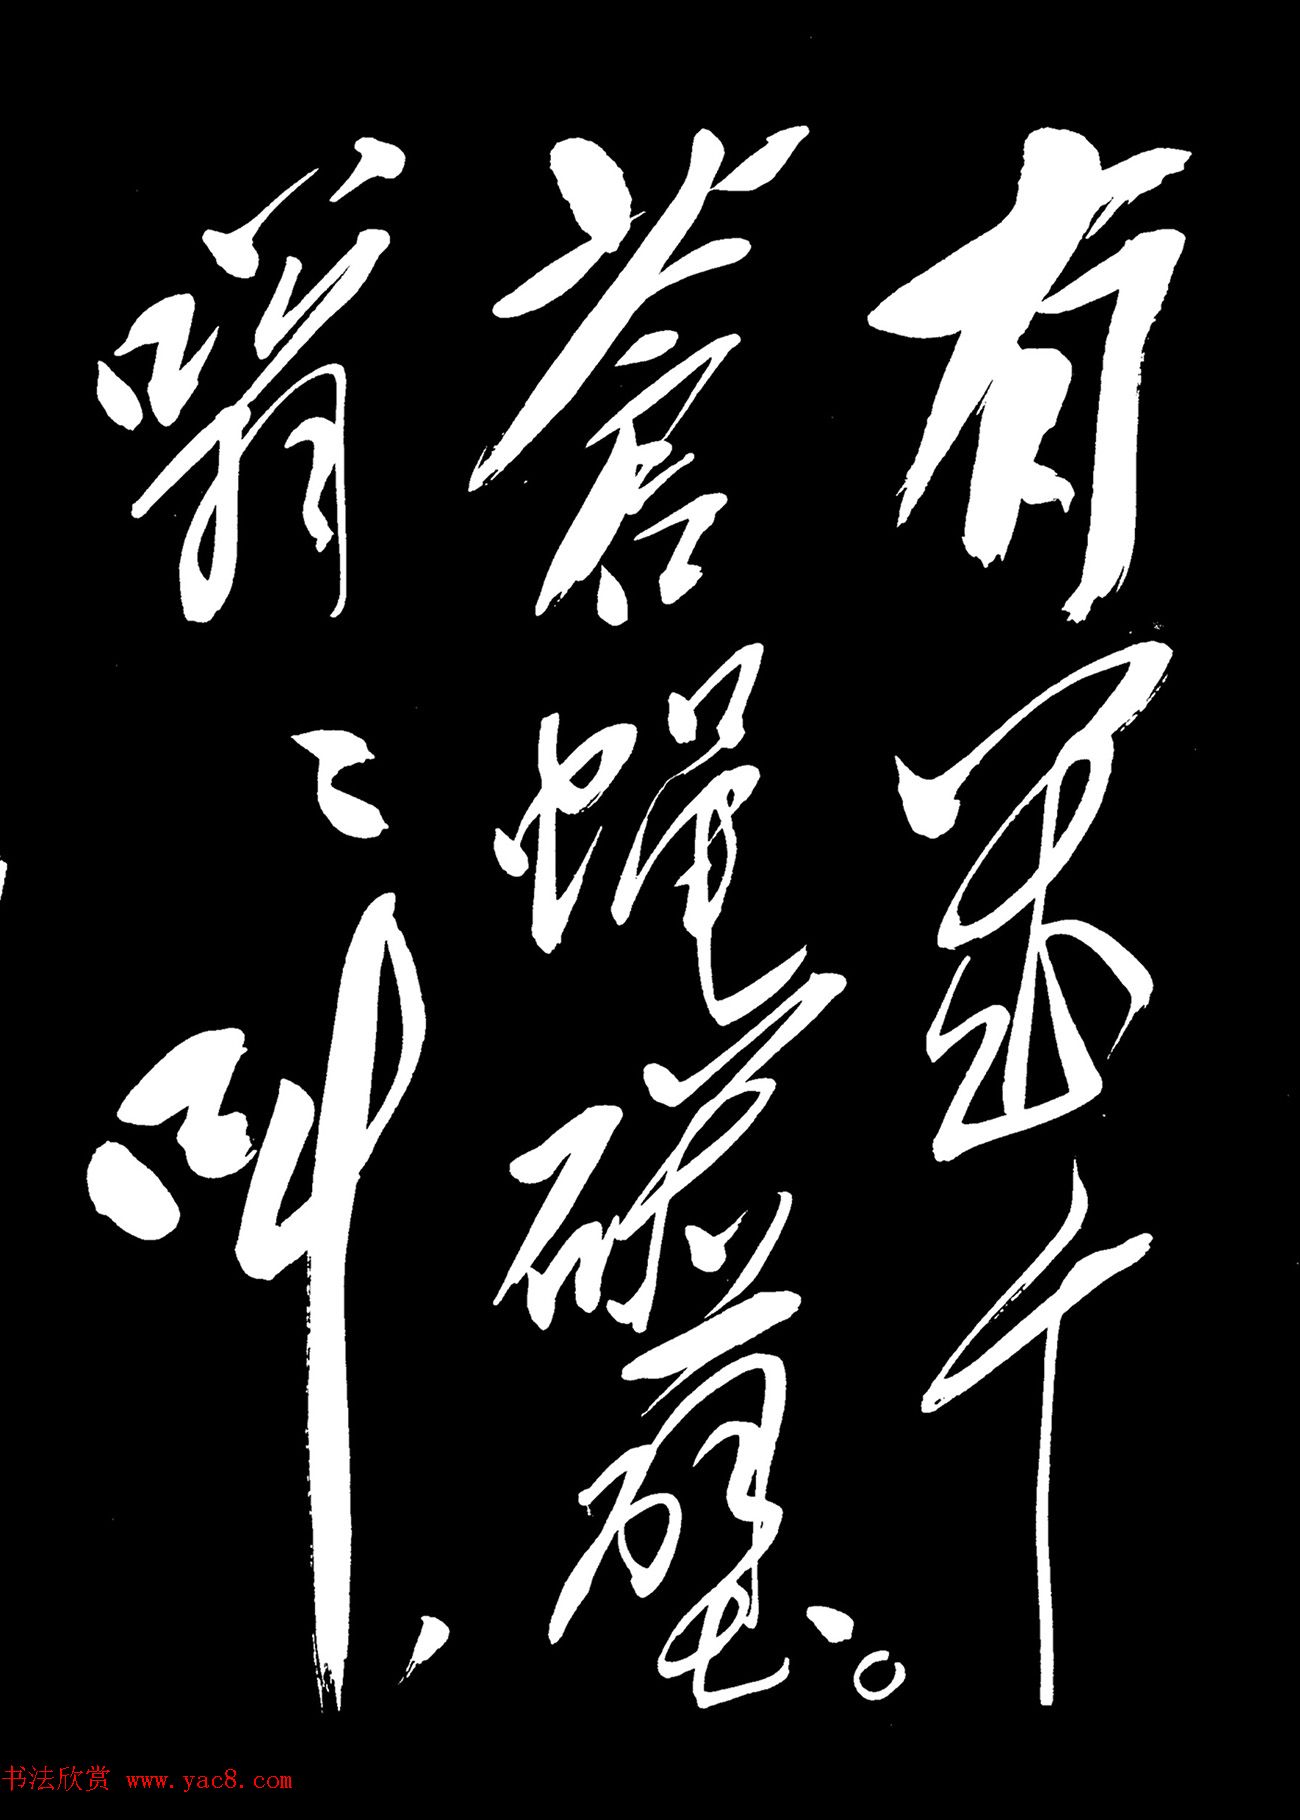 有幾个
蒼蠅碰壁。
嗡々叫，
书法欣赏 www.yac8.com